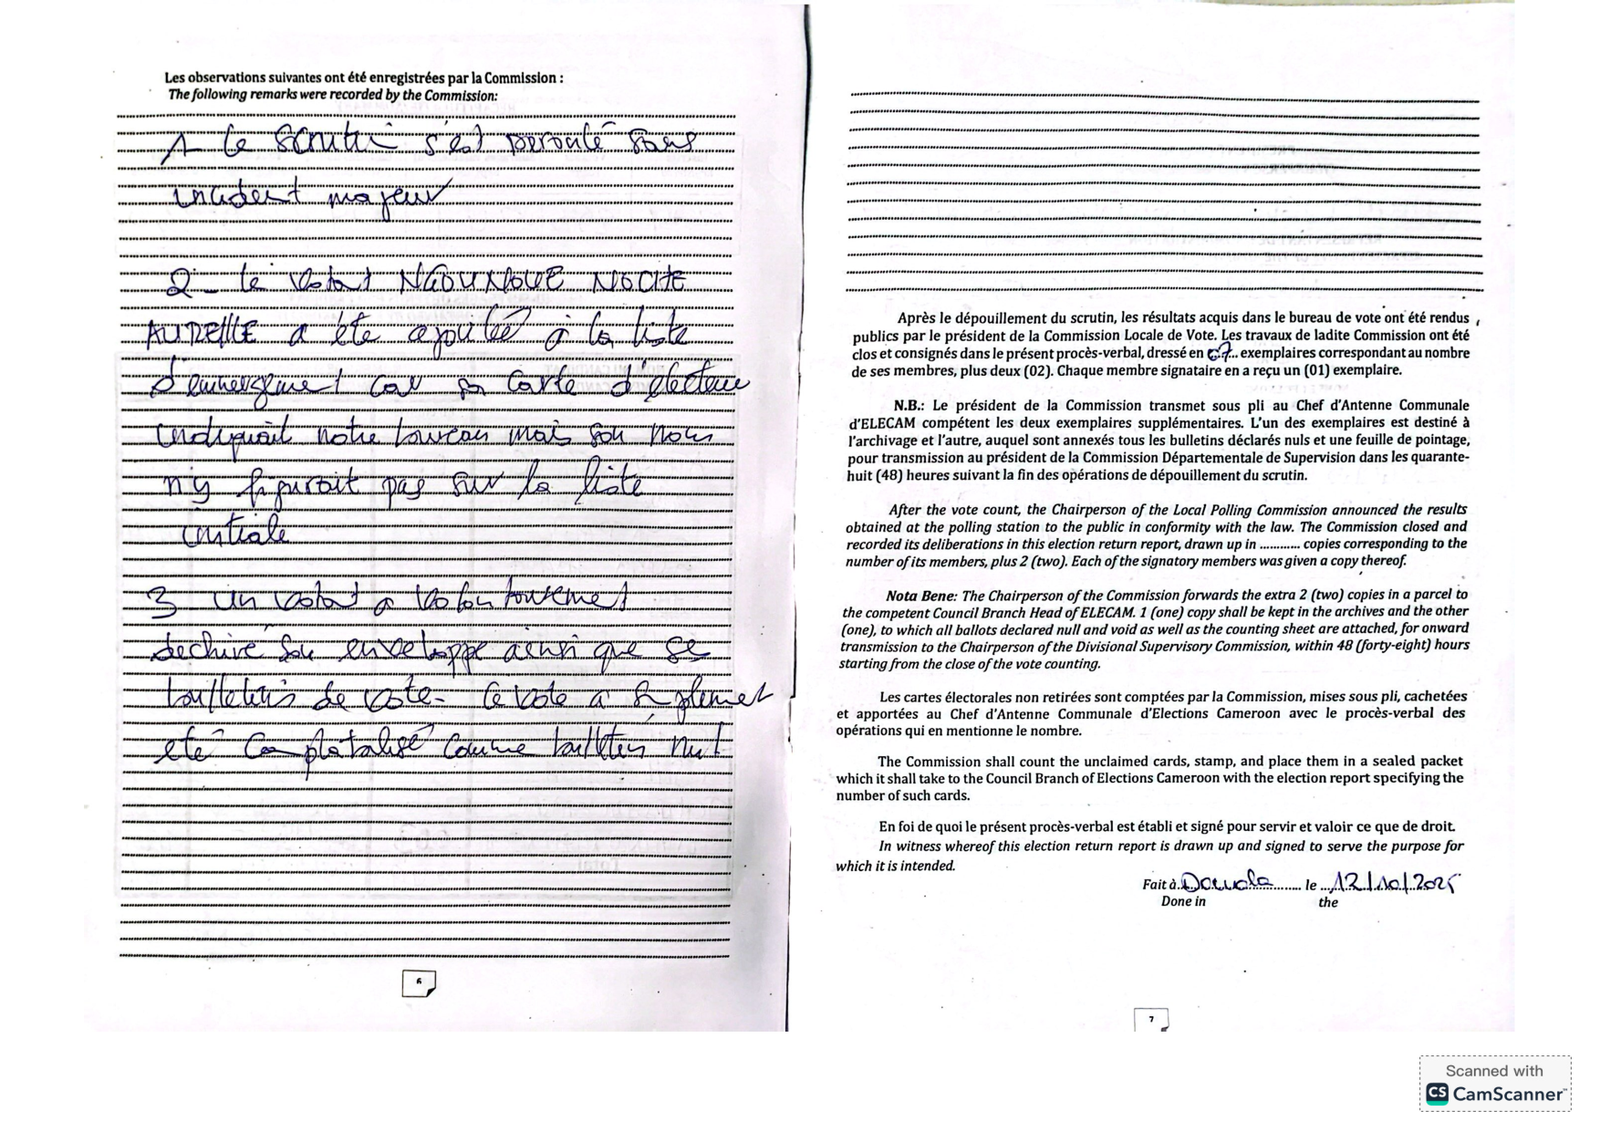 Les observations suivantes ont été enregistrées par la Commission :
The following remarks were recorded by the Commission:
1- Le scrutin s'est deroulé sans
incident majeur
2- Le votant NGOUNOUE NOCHE
AURELLE a été ajouté à la liste
d'emmergement car sa carte d'électeur
indiquait notre bureau mais son nom
n'y figurait pas sur la liste
initiale
3 Un votant a volontairement
dechiré son enveloppe ainsi que se
bulletins de vote. Ce vote a simplement
eté comptabilisé comme bulletin nul
6
Après le dépouillement du scrutin, les résultats acquis dans le bureau de vote ont été rendus
publics par le président de la Commission Locale de Vote. Les travaux de ladite Commission ont été
clos et consignés dans le présent procès-verbal, dressé en 07 exemplaires correspondant au nombre
de ses membres, plus deux (02). Chaque membre signataire en a reçu un (01) exemplaire.
N.B.: Le président de la Commission transmet sous pli au Chef d'Antenne Communale
d'ELECAM compétent les deux exemplaires supplémentaires. L'un des exemplaires est destiné à
l'archivage et l'autre, auquel sont annexés tous les bulletins déclarés nuls et une feuille de pointage,
pour transmission au président de la Commission Départementale de Supervision dans les quarante-
huit (48) heures suivant la fin des opérations de dépouillement du scrutin.
After the vote count, the Chairperson of the Local Polling Commission announced the results
obtained at the polling station to the public in conformity with the law. The Commission closed and
recorded its deliberations in this election return report, drawn up in ............ copies corresponding to the
number of its members, plus 2 (two). Each of the signatory members was given a copy thereof.
Nota Bene: The Chairperson of the Commission forwards the extra 2 (two) copies in a parcel to
the competent Council Branch Head of ELECAM. 1 (one) copy shall be kept in the archives and the other
(one), to which all ballots declared null and void as well as the counting sheet are attached, for onward
transmission to the Chairperson of the Divisional Supervisory Commission, within 48 (forty-eight) hours
starting from the close of the vote counting.
Les cartes électorales non retirées sont comptées par la Commission, mises sous pli, cachetées
et apportées au Chef d'Antenne Communale d'Elections Cameroon avec le procès-verbal des
opérations qui en mentionne le nombre.
The Commission shall count the unclaimed cards, stamp, and place them in a sealed packet
which it shall take to the Council Branch of Elections Cameroon with the election report specifying the
number of such cards.
En foi de quoi le présent procès-verbal est établi et signé pour servir et valoir ce que de droit.
In witness whereof this election return report is drawn up and signed to serve the purpose for
which it is intended.
Fait à Douala le 12/10/2025
Done in the
7
Scanned with
CS CamScanner